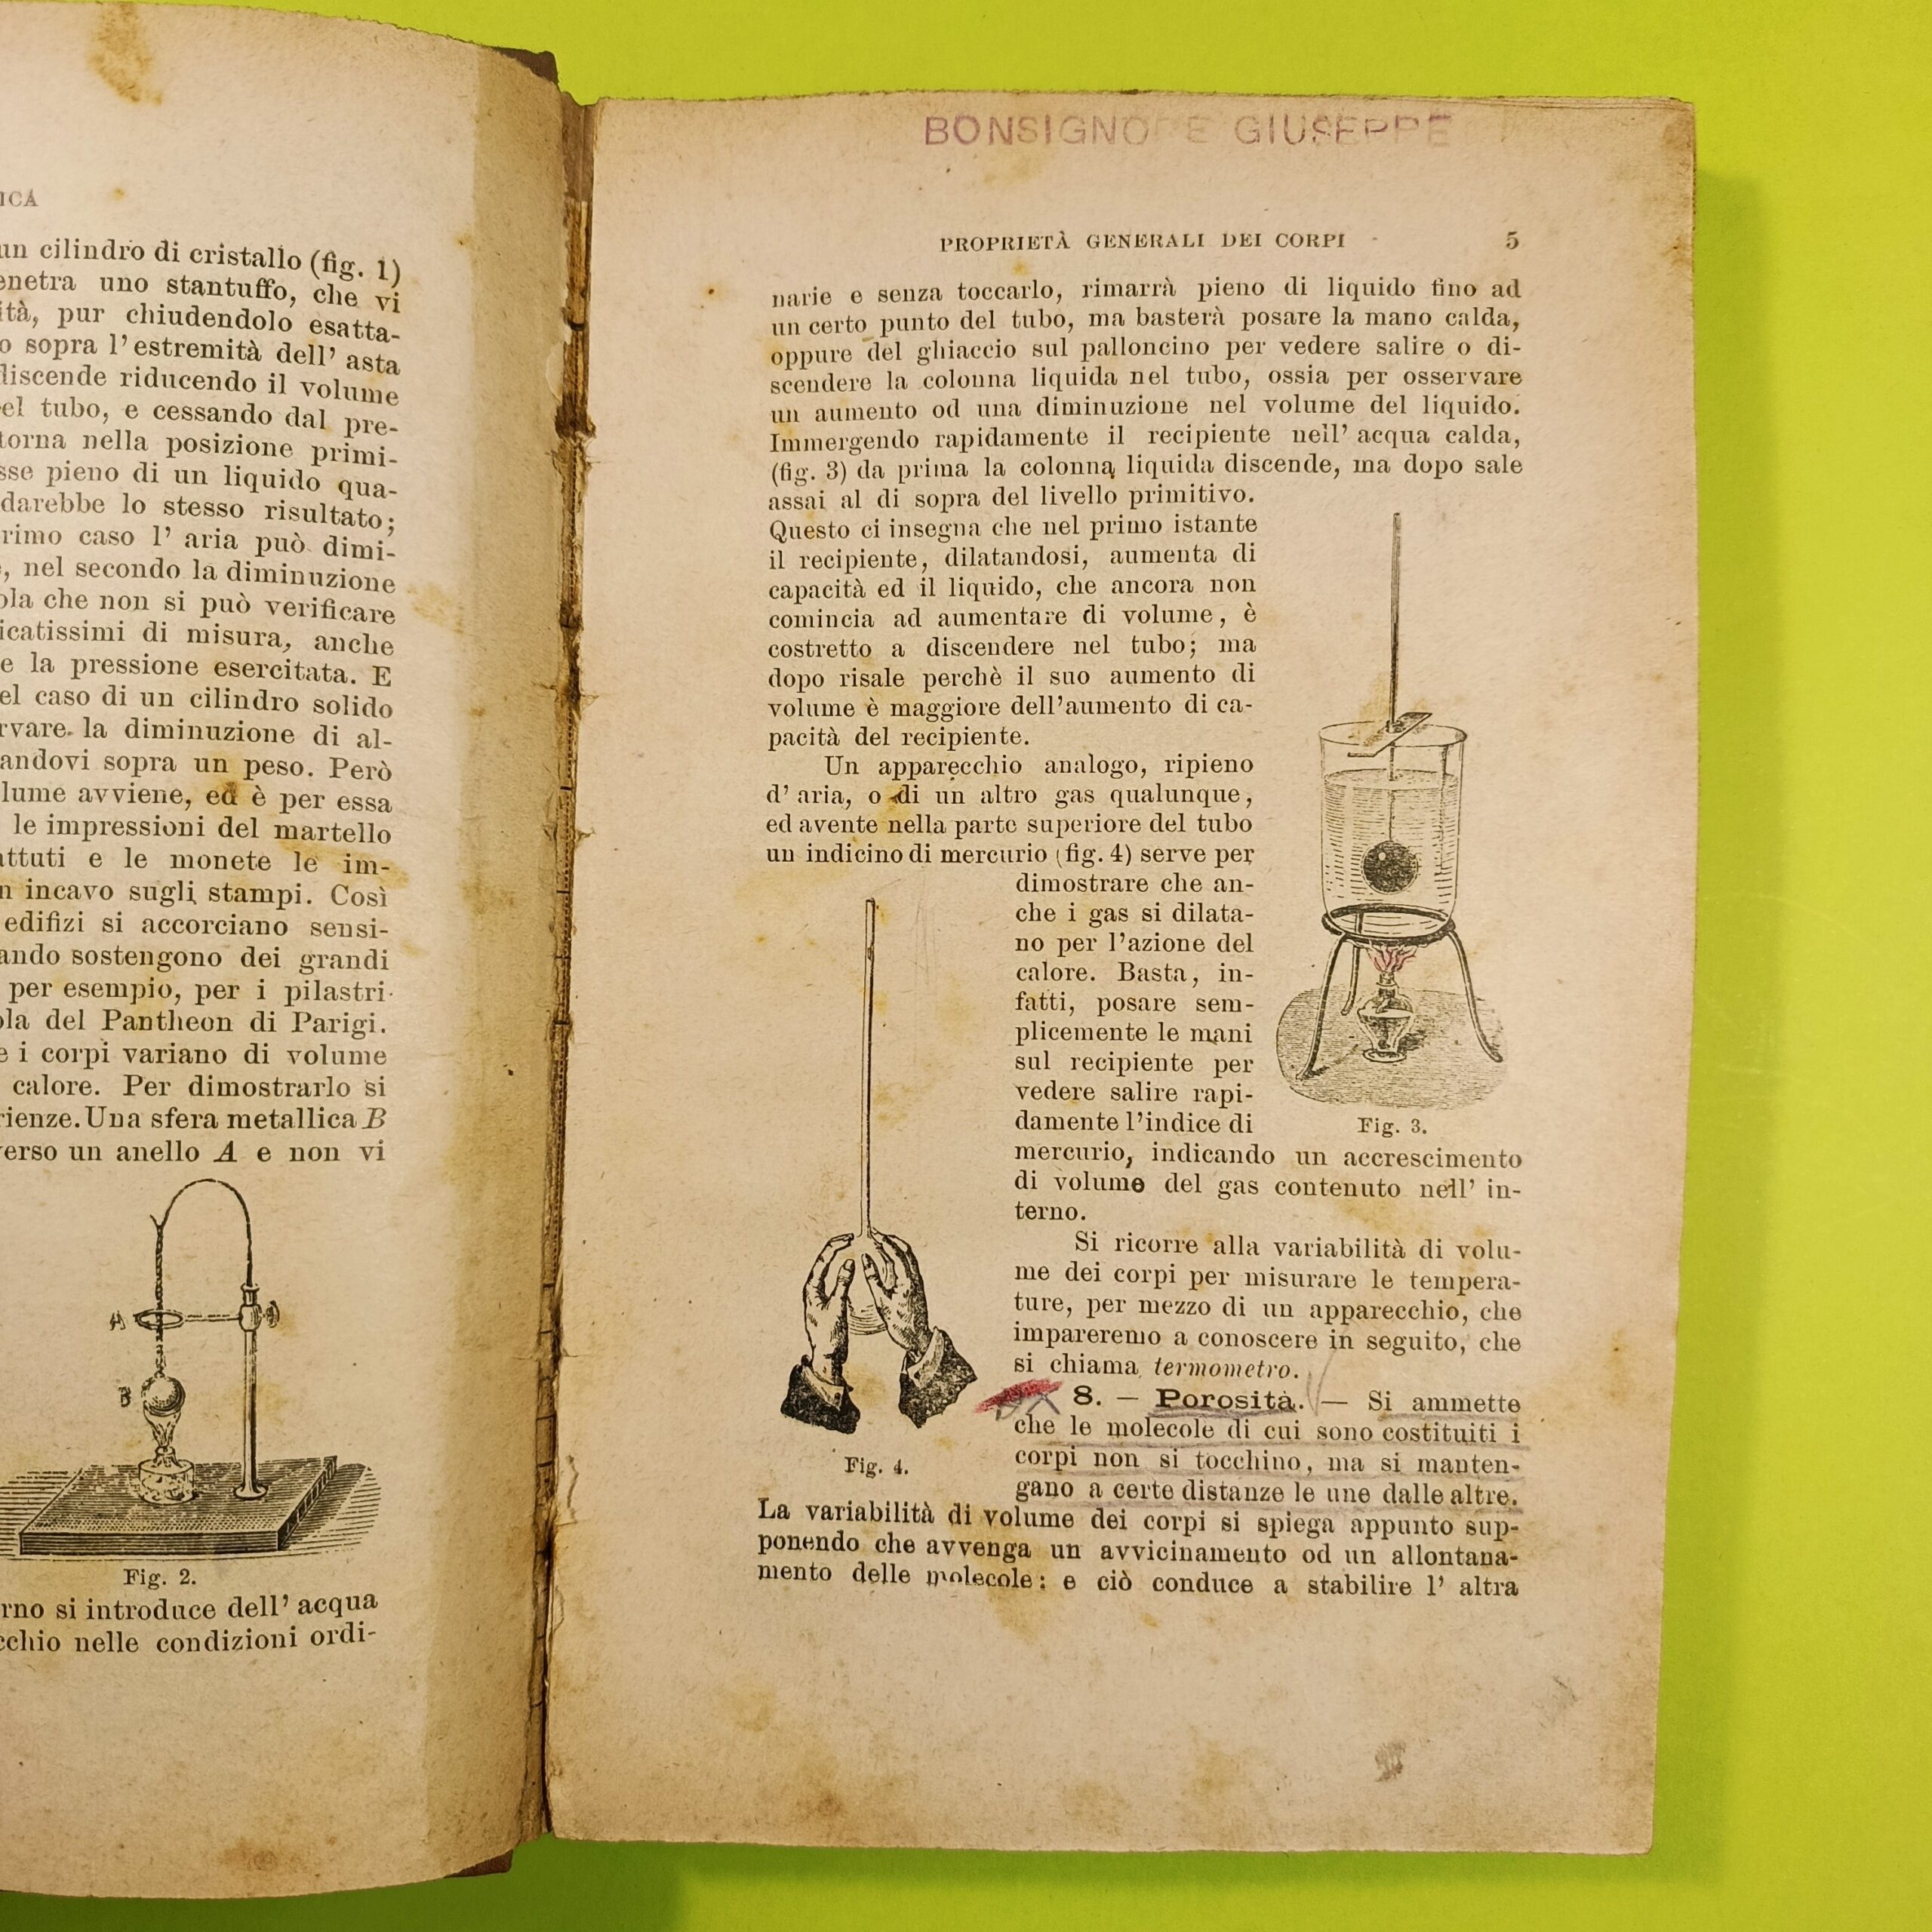 ICA
un cilindro di cristallo (fig. 1)
enetra uno stantuffo, che vi
ità, pur chiudendolo esatta-
o sopra l'estremità dell' asta
discende riducendo il volume
el tubo, e cessando dal pre-
torna nella posizione primi-
sse pieno di un liquido qua-
darebbe lo stesso risultato;
rimo caso l' aria può dimi-
, nel secondo la diminuzione
ola che non si può verificare
icatissimi di misura, anche
e la pressione esercitata. E
el caso di un cilindro solido
rvare la diminuzione di al-
andovi sopra un peso. Però
lume avviene, ed è per essa
le impressioni del martello
attuti e le monete le im-
n incavo sugli stampi. Così
edifizi si accorciano sensi-
ando sostengono dei grandi
per esempio, per i pilastri
ola del Pantheon di Parigi.
e i corpi variano di volume
calore. Per dimostrarlo si
rienze. Una sfera metallica B
verso un anello A e non vi
A
B
Fig. 2.
rno si introduce dell' acqua
cchio nelle condizioni ordi-
BONSIGNO E GIUSEPPE
PROPRIETÀ GENERALI DEI CORPI 5
narie e senza toccarlo, rimarrà pieno di liquido fino ad
un certo punto del tubo, ma basterà posare la mano calda,
oppure del ghiaccio sul palloncino per vedere salire o di-
scendere la colonna liquida nel tubo, ossia per osservare
un aumento od una diminuzione nel volume del liquido.
Immergendo rapidamente il recipiente nell' acqua calda,
(fig. 3) da prima la colonna liquida discende, ma dopo sale
assai al di sopra del livello primitivo.
Questo ci insegna che nel primo istante
il recipiente, dilatandosi, aumenta di
capacità ed il liquido, che ancora non
comincia ad aumentare di volume, è
costretto a discendere nel tubo; ma
dopo risale perchè il suo aumento di
volume è maggiore dell'aumento di ca-
pacità del recipiente.
Un apparecchio analogo, ripieno
d' aria, o di un altro gas qualunque,
ed avente nella parte superiore del tubo
un indicino di mercurio (fig. 4) serve per
dimostrare che an-
che i gas si dilata-
no per l'azione del
calore. Basta, in-
fatti, posare sem-
plicemente le mani
sul recipiente per
vedere salire rapi-
damente l'indice di
Fig. 3.
mercurio, indicando un accrescimento
di volume del gas contenuto nell' in-
terno.
Si ricorre alla variabilità di volu-
me dei corpi per misurare le tempera-
ture, per mezzo di un apparecchio, che
impareremo a conoscere in seguito, che
si chiama termometro.
8. — Porosità. — Si ammette
che le molecole di cui sono costituiti i
corpi non si tocchino, ma si manten-
Fig. 4.
gano a certe distanze le une dalle altre.
La variabilità di volume dei corpi si spiega appunto sup-
ponendo che avvenga un avvicinamento od un allontana-
mento delle molecole: e ciò conduce a stabilire l' altra